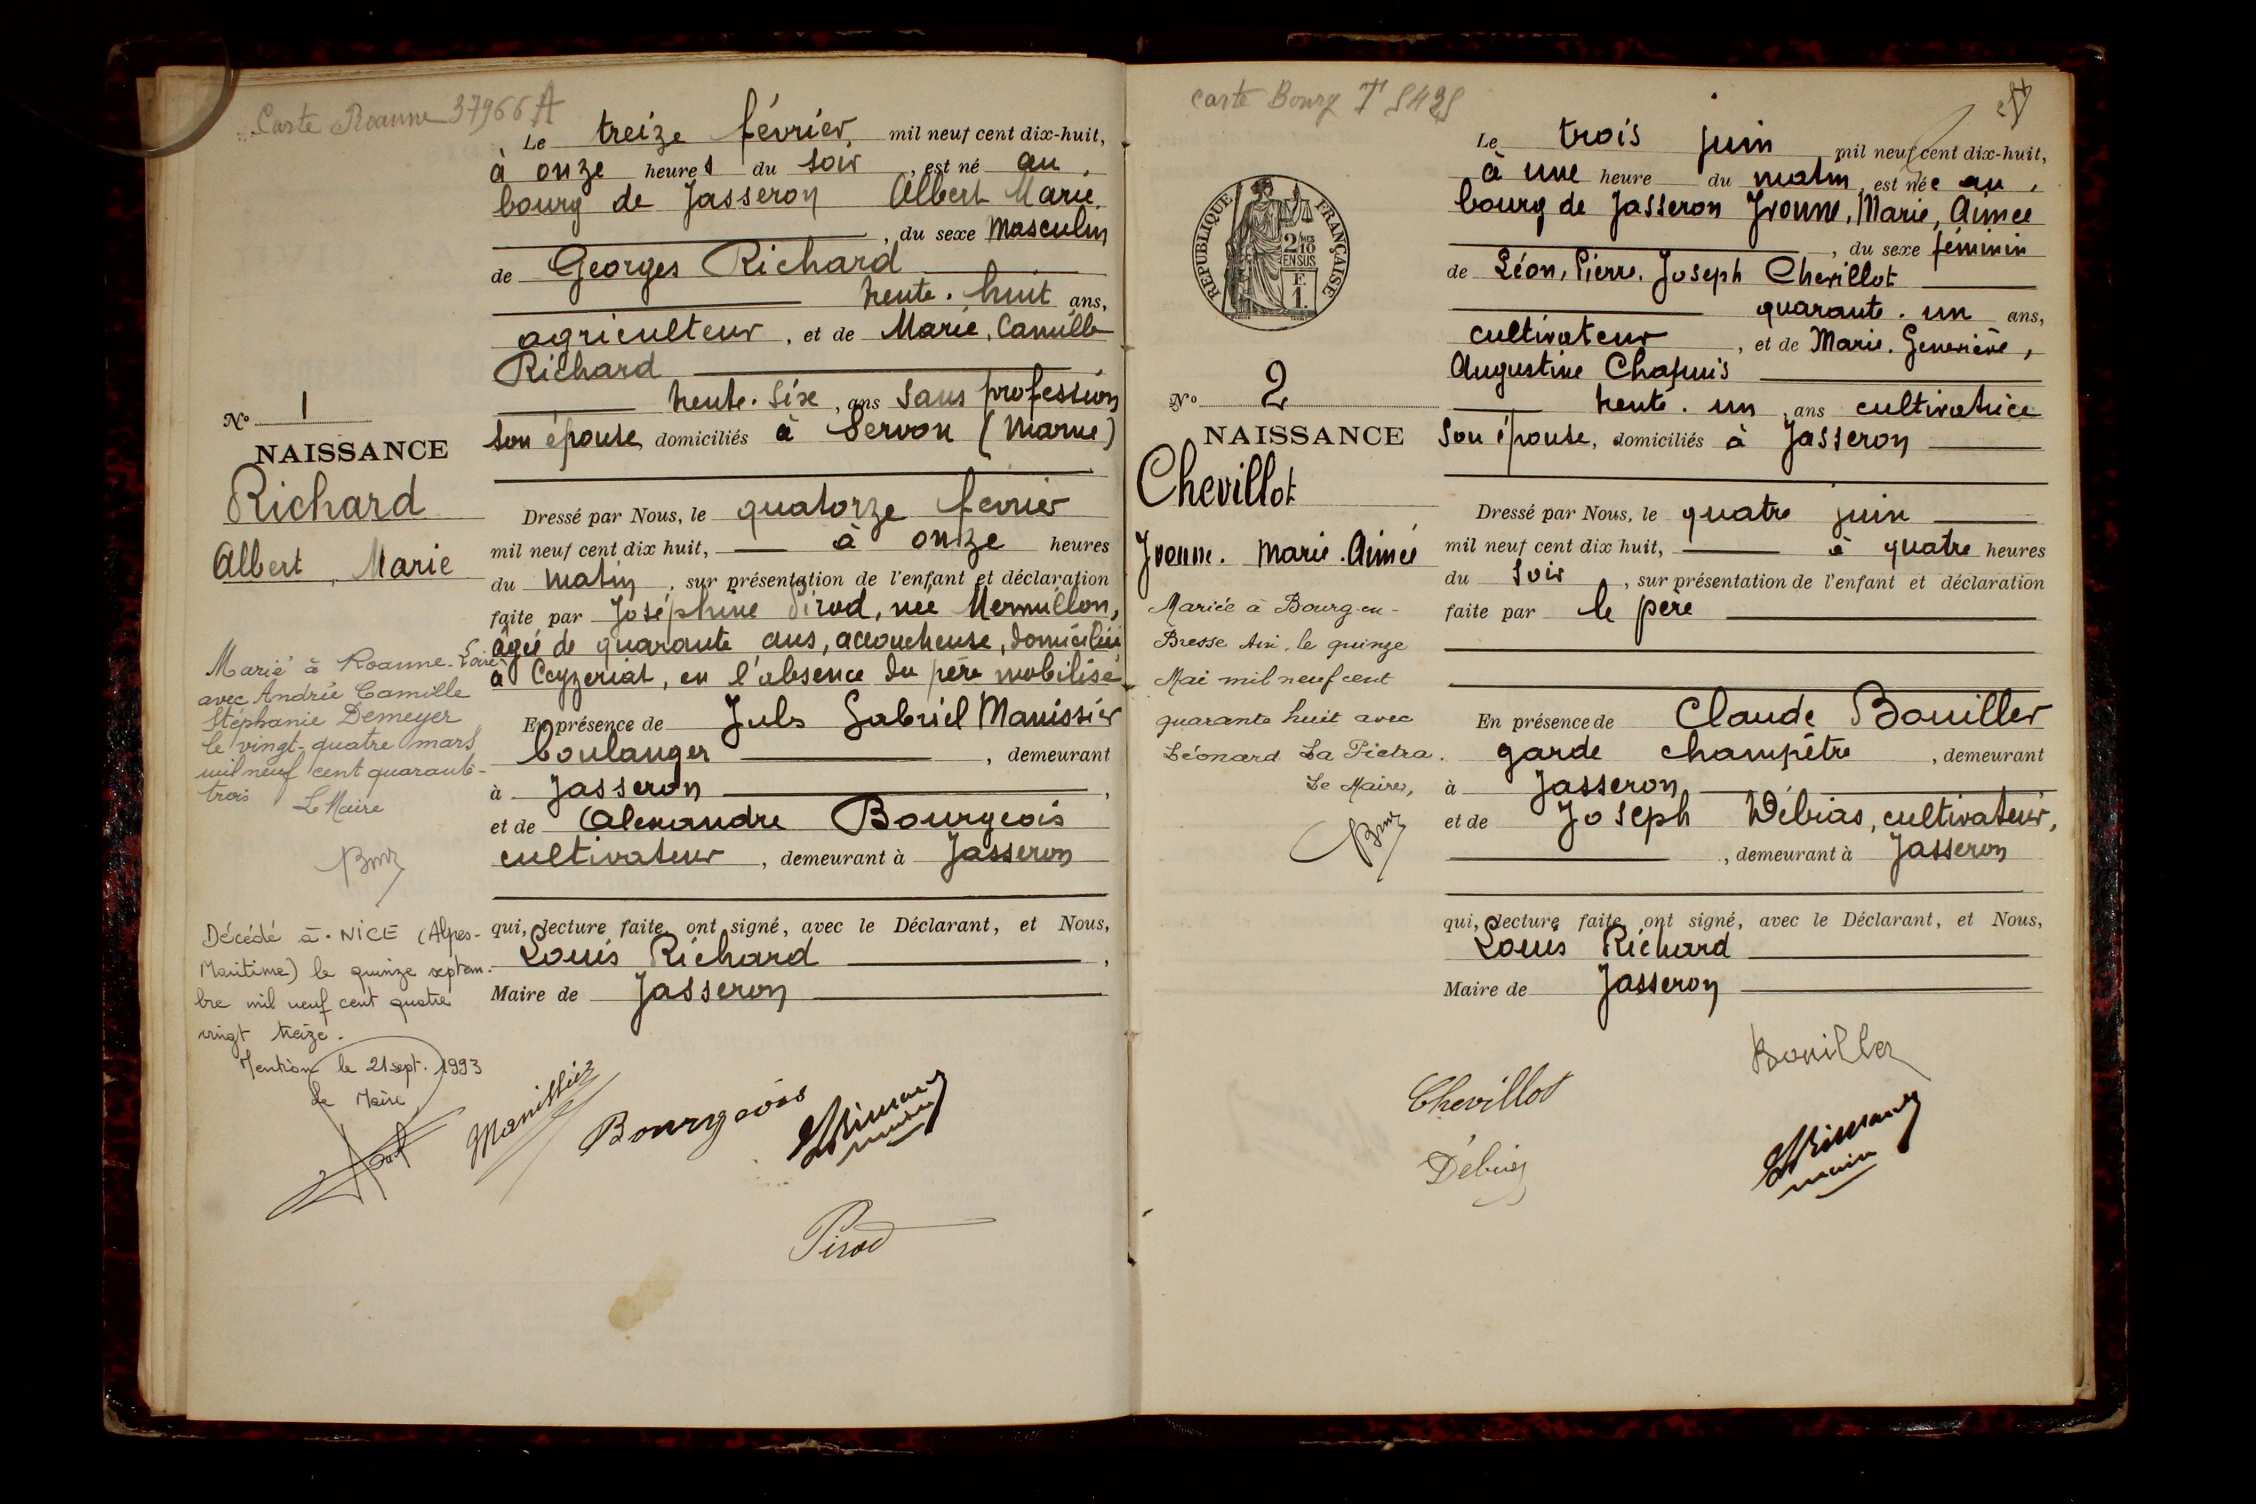 Carte Roanne 37966 A
Le treize février mil neuf cent dix-huit,
à onze heures du soir, est né au
bourg de Jasseron Albert Marie
, du sexe masculin
de Georges Richard
trente-huit ans,
agriculteur, et de Marie, Camille
Richard
trente-six, ans sans profession
son épouse, domiciliés à Servon (Marne)
No 1
NAISSANCE
Richard
Albert, Marie
Dressé par Nous, le quatorze février
mil neuf cent dix huit, à onze heures
du matin, sur présentation de l'enfant et déclaration
faite par Joséphine Pirod, née Mermillon,
âgée de quarante ans, accoucheuse, domiciliée
à Ceyzeriat, en l'absence du père mobilisé
En présence de Jules Gabriel Manissier
boulanger, demeurant
à Jasseron,
et de Alexandre Bourgeois
cultivateur, demeurant à Jasseron
qui, lecture faite, ont signé, avec le Déclarant, et Nous,
Louis Richard,
Maire de Jasseron
Marié à Roanne-Loire
avec Andrée Camille
Stéphanie Demeyer
le vingt-quatre mars
mil neuf cent quarante-
trois Le Maire
Décédé à NICE (Alpes-
Maritime) le quinze septem-
bre mil neuf cent quatre
vingt treize.
Mention le 21 sept. 1993
Le Maire
Manissier
Bourgeois
Pirod
Carte Bourg T 5425
Le trois juin mil neuf cent dix-huit,
à une heure du matin, est née au
bourg de Jasseron Yvonne, Marie, Aimée
, du sexe féminin
de Léon, Pierre, Joseph Chevillot
quarante-un ans,
cultivateur, et de Marie, Geneviève,
Augustine Chapuis
trente-un, ans cultivatrice
son épouse, domiciliés à Jasseron
RÉPUBLIQUE FRANÇAISE
2/10
EN SUS
F.
1.
No 2
NAISSANCE
Chevillot
Yvonne. Marie. Aimée
Dressé par Nous, le quatre juin
mil neuf cent dix huit, à quatre heures
du soir, sur présentation de l'enfant et déclaration
faite par le père
En présence de Claude Bouiller
garde champêtre, demeurant
à Jasseron
et de Joseph Débias, cultivateur,
, demeurant à Jasseron
qui, lecture faite, ont signé, avec le Déclarant, et Nous,
Louis Richard
Maire de Jasseron
Mariée à Bourg-en-
Bresse Ain, le quinze
Mai mil neuf cent
quarante huit avec
Léonard La Pietra.
Le Maire,
Bouiller
Chevillot
Débias
maire